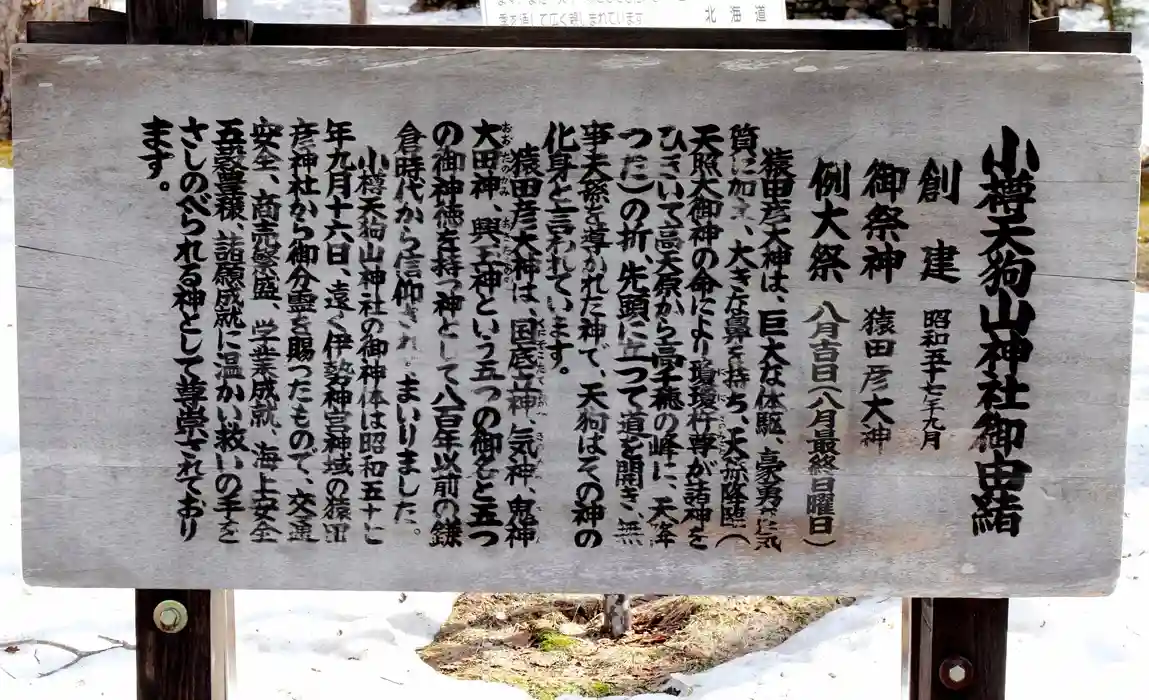 季を通して広く親しまれています。
北海道
小樽天狗山神社御由緒
創建 昭和五十七年九月
御祭神 猿田彦大神
例大祭 八月吉日(八月最終日曜日)
猿田彦大神は、巨大な体躯、豪勇な気
質に加え、大きな鼻を持ち、天孫降臨(
天照大御神の命により瓊瓊杵尊が諸神を
ひきいて高天原から高千穂の峰に、天降
った)の折、先頭に立って道を開き、無
事天孫を導かれた神で、天狗はその神の
化身と言われています。
猿田彦大神は、国底立神、気神、鬼神
大田神、興玉神という五つの御名と五つ
の御神徳を持つ神として八百年以前の鎌
倉時代から信仰されてまいりました。
小樽天狗山神社の御神体は昭和五十七
年九月十六日、遠く伊勢神宮神域の猿田
彦神社から御分霊を賜ったもので、交通
安全、商売繁盛、学業成就、海上安全
五穀豊穣、諸願成就に温かい救いの手を
さしのべられる神として尊崇されており
ます。